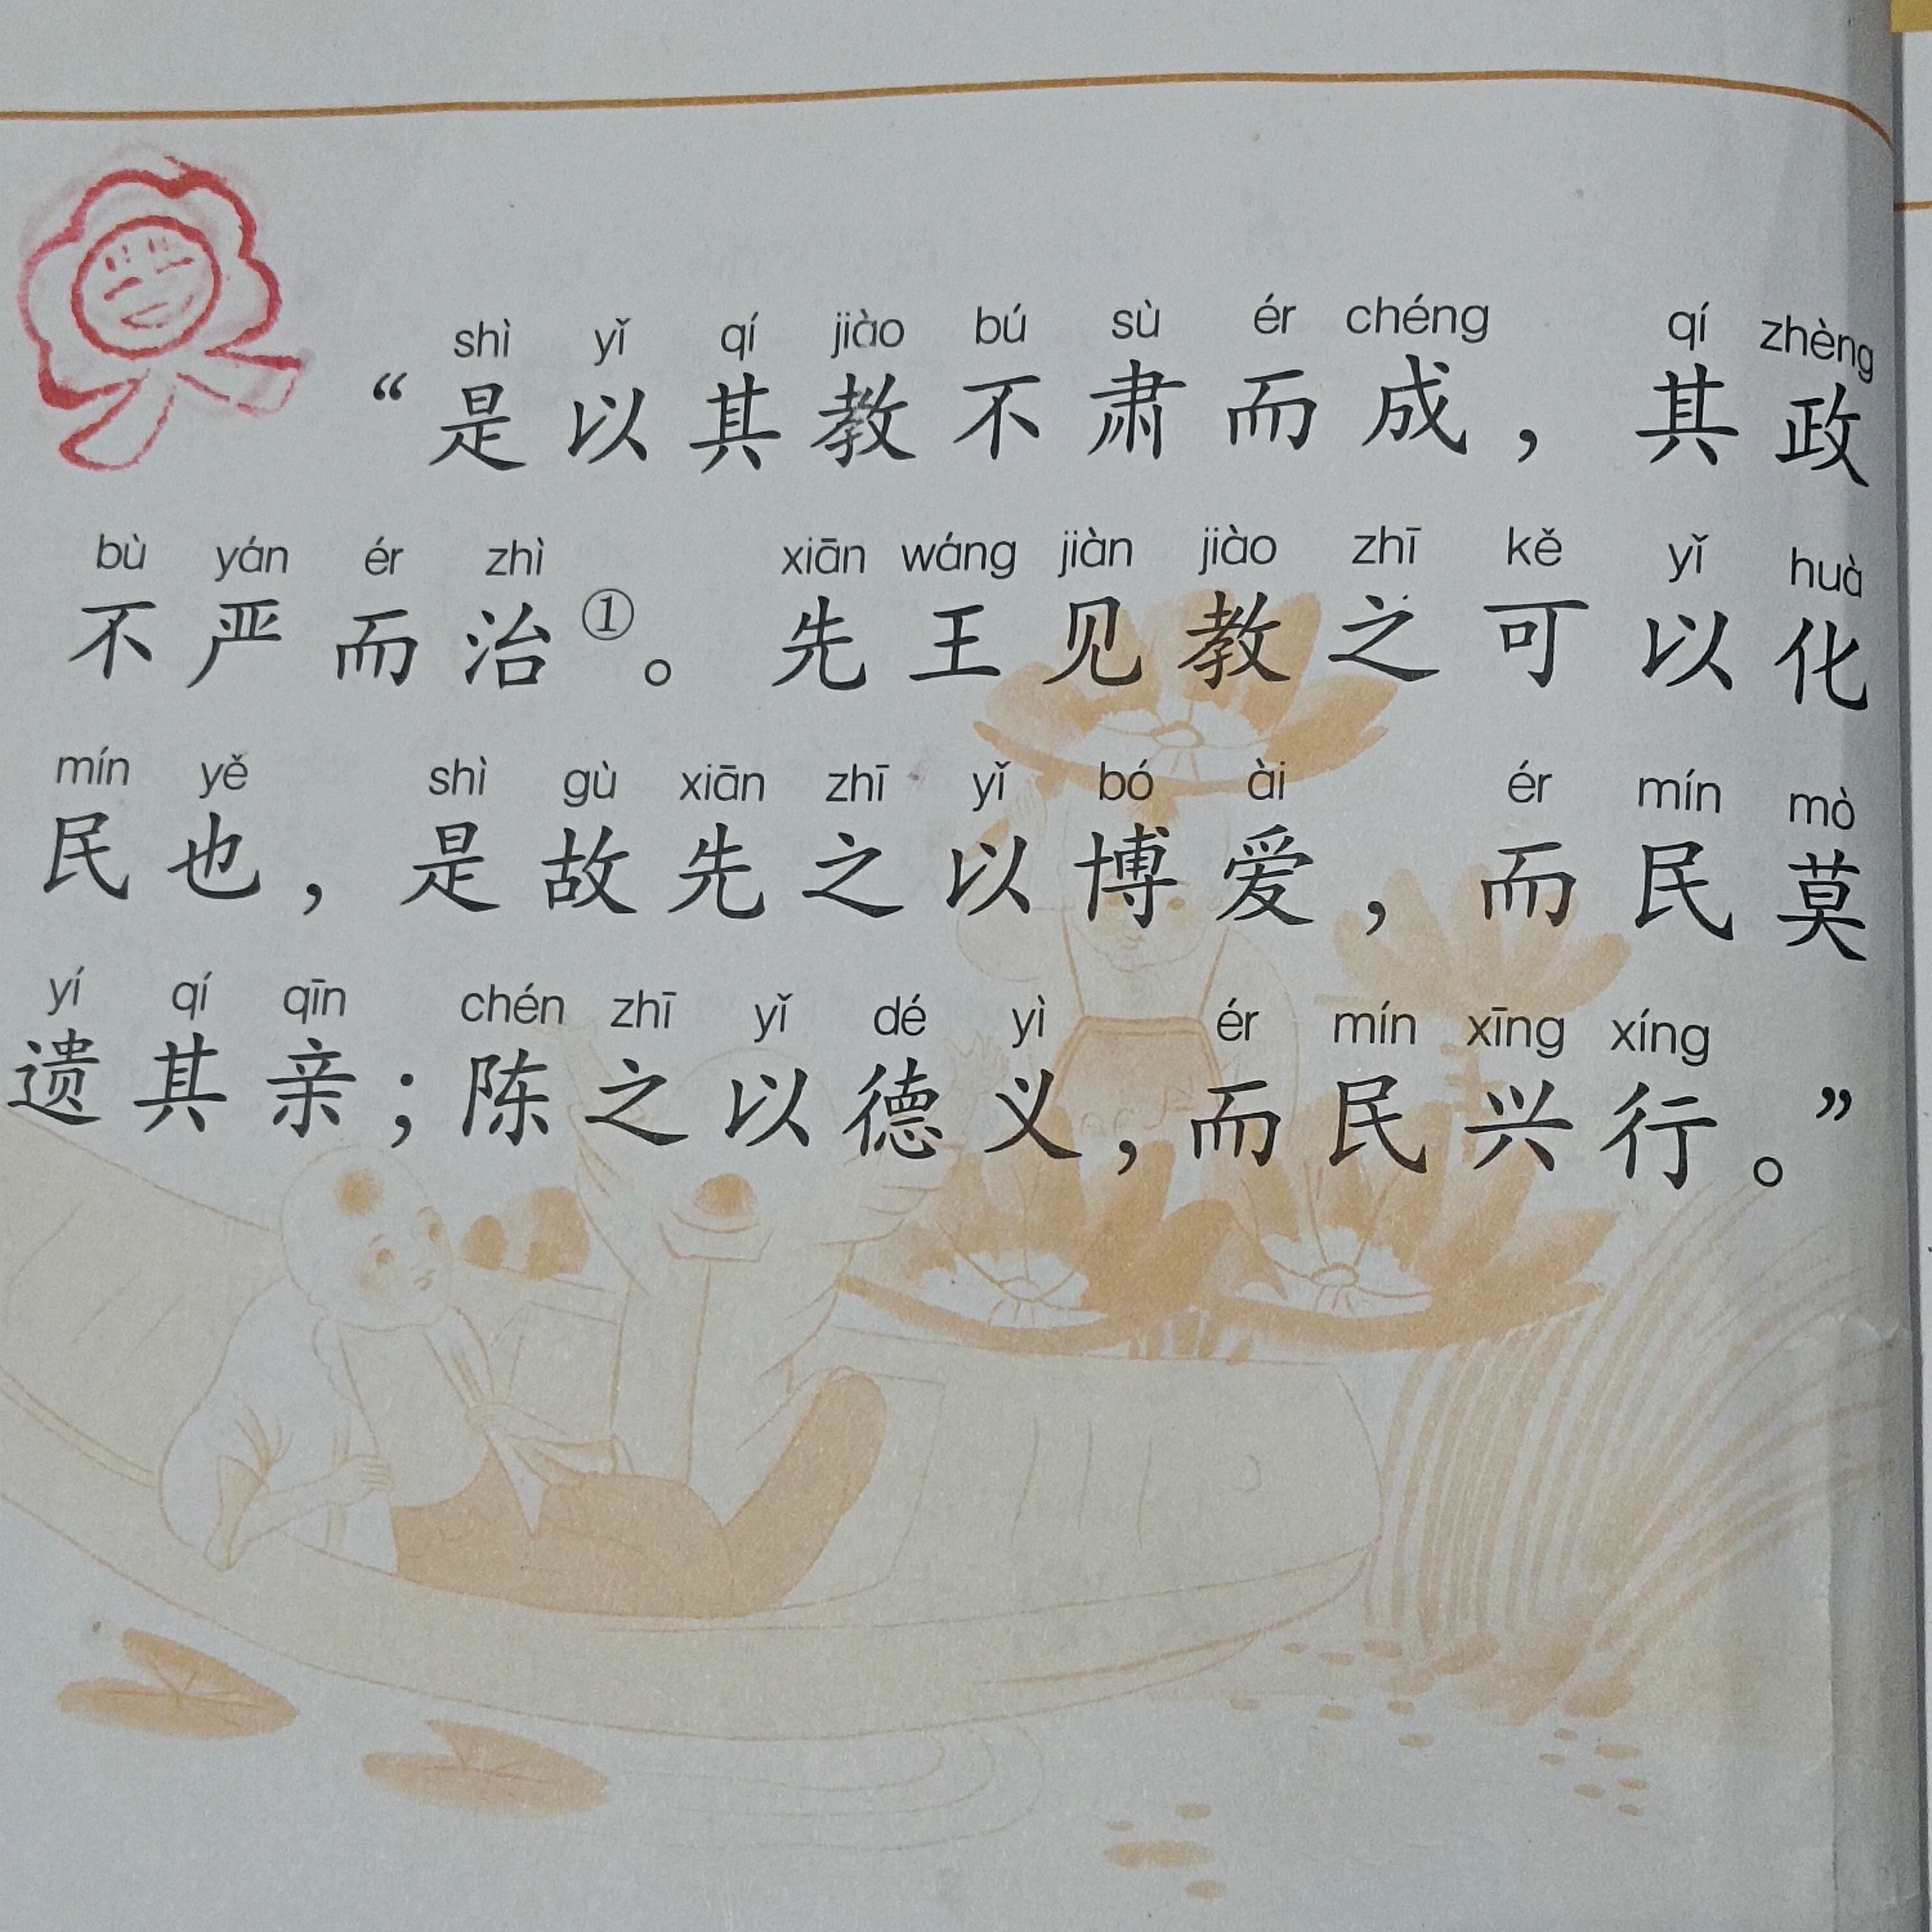 shì yǐ qí jiào bú sù ér chéng qí zhèng
“是以其教不肃而成，其政
bù yán ér zhì xiān wáng jiàn jiào zhī kě yǐ huà
不严而治①。先王见教之可以化
mín yě shì gù xiān zhī yǐ bó ài ér mín mò
民也，是故先之以博爱，而民莫
yí qí qīn chén zhī yǐ dé yì ér mín xīng xíng
遗其亲；陈之以德义，而民兴行。”